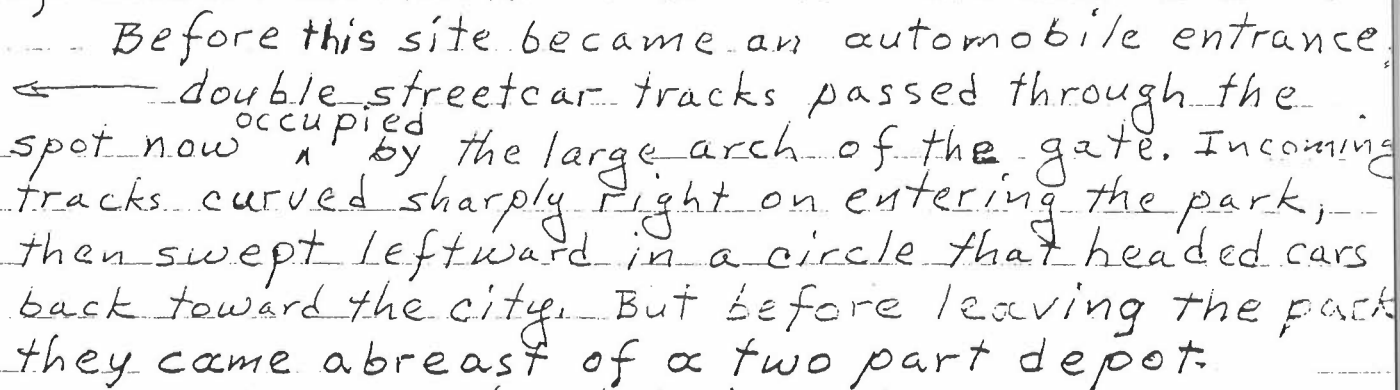 Before this site became an automobile entrance,
double streetcar tracks passed through the
spot now occupied by the large arch of the gate. Incoming
tracks curved sharply right on entering the park,
then swept leftward in a circle that headed cars
back toward the city. But before leaving the park
they came abreast of a two part depot.